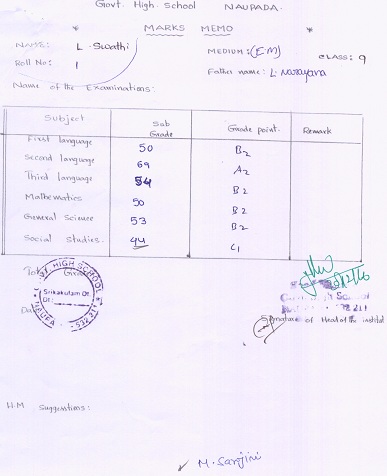 Govt. High. School NAUPADA.
MARKS MEMO
NAME: L. Swathi MEDIUM: (EM) CLASS: 9
Roll No: 1 Father name: L. Narayana
Name of the Examinations:
Subject Sub Grade Grade point. Remark
First language 50 B2
Second language 69 A2
Third language 54 B2
Mathematics 50 B2
General Science 53 B2
Social studies. 44 C1
HIGH SCHOOL
Srikakulam Dt
Dt:
School
Signature of Head of the institut
H.M Suggestions:
M. Sarojini